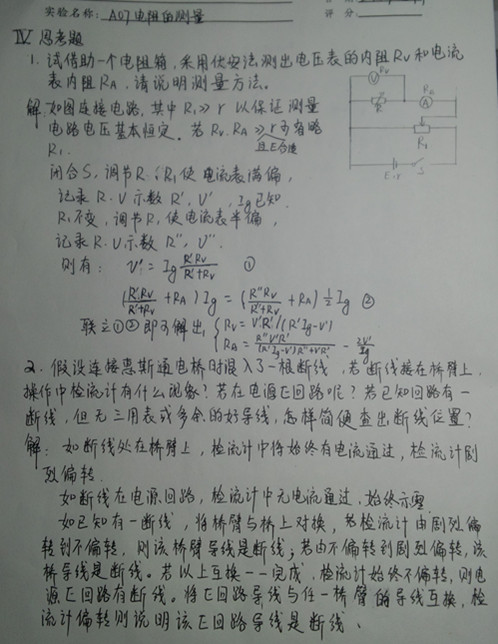 实验名称: A07电阻的测量
评 分:
Ⅳ 思考题
1. 试借助一个电阻箱,采用伏安法测出电压表的内阻Rv和电流
表内阻RA,请说明测量方法。
解:如图连接电路,其中R₁≫r以保证测量
电路电压基本恒定。若Rv、RA≫r可省略
R₁.
且E合适
闭合S,调节R、R₁使电流表满偏,
记录R、V示数R',V',Ig已知.
R₁不变,调节R,使电流表半偏,
记录R、V示数R'',V''.
则有: V'=Ig R'Rv/(R'+Rv) ①
(R'Rv/(R'+Rv)+RA)Ig=(R''Rv/(R''+Rv)+RA)½Ig ②
联立①②即可解出, Rv=V'R'/(R'Ig-V')
V Rv
R A
R₁
E.r S
2. 假设连接惠斯通电桥时混入了一根断线,若断线接在桥臂上,
操作中检流计有什么现象?若在电源E回路呢?若已知回路有一
断线,但无三用表或多余的好导线,怎样简便查出断线位置?
解:如断线处在桥臂上,检流计中将始终有电流通过,检流计剧
烈偏转.
如断线在电源回路,检流计中无电流通过,始终示零.
如已知有一断线,将桥臂与桥上对换,若检流计由剧烈偏
转到不偏转,则该桥臂导线是断线;若由不偏转到剧烈偏转,该
桥导线是断线。若以上互换一一完成,检流计始终不偏转,则电
源E回路有断线。将E回路导线与任一桥臂的导线互换,检
流计偏转则说明该E回路导线是断线.